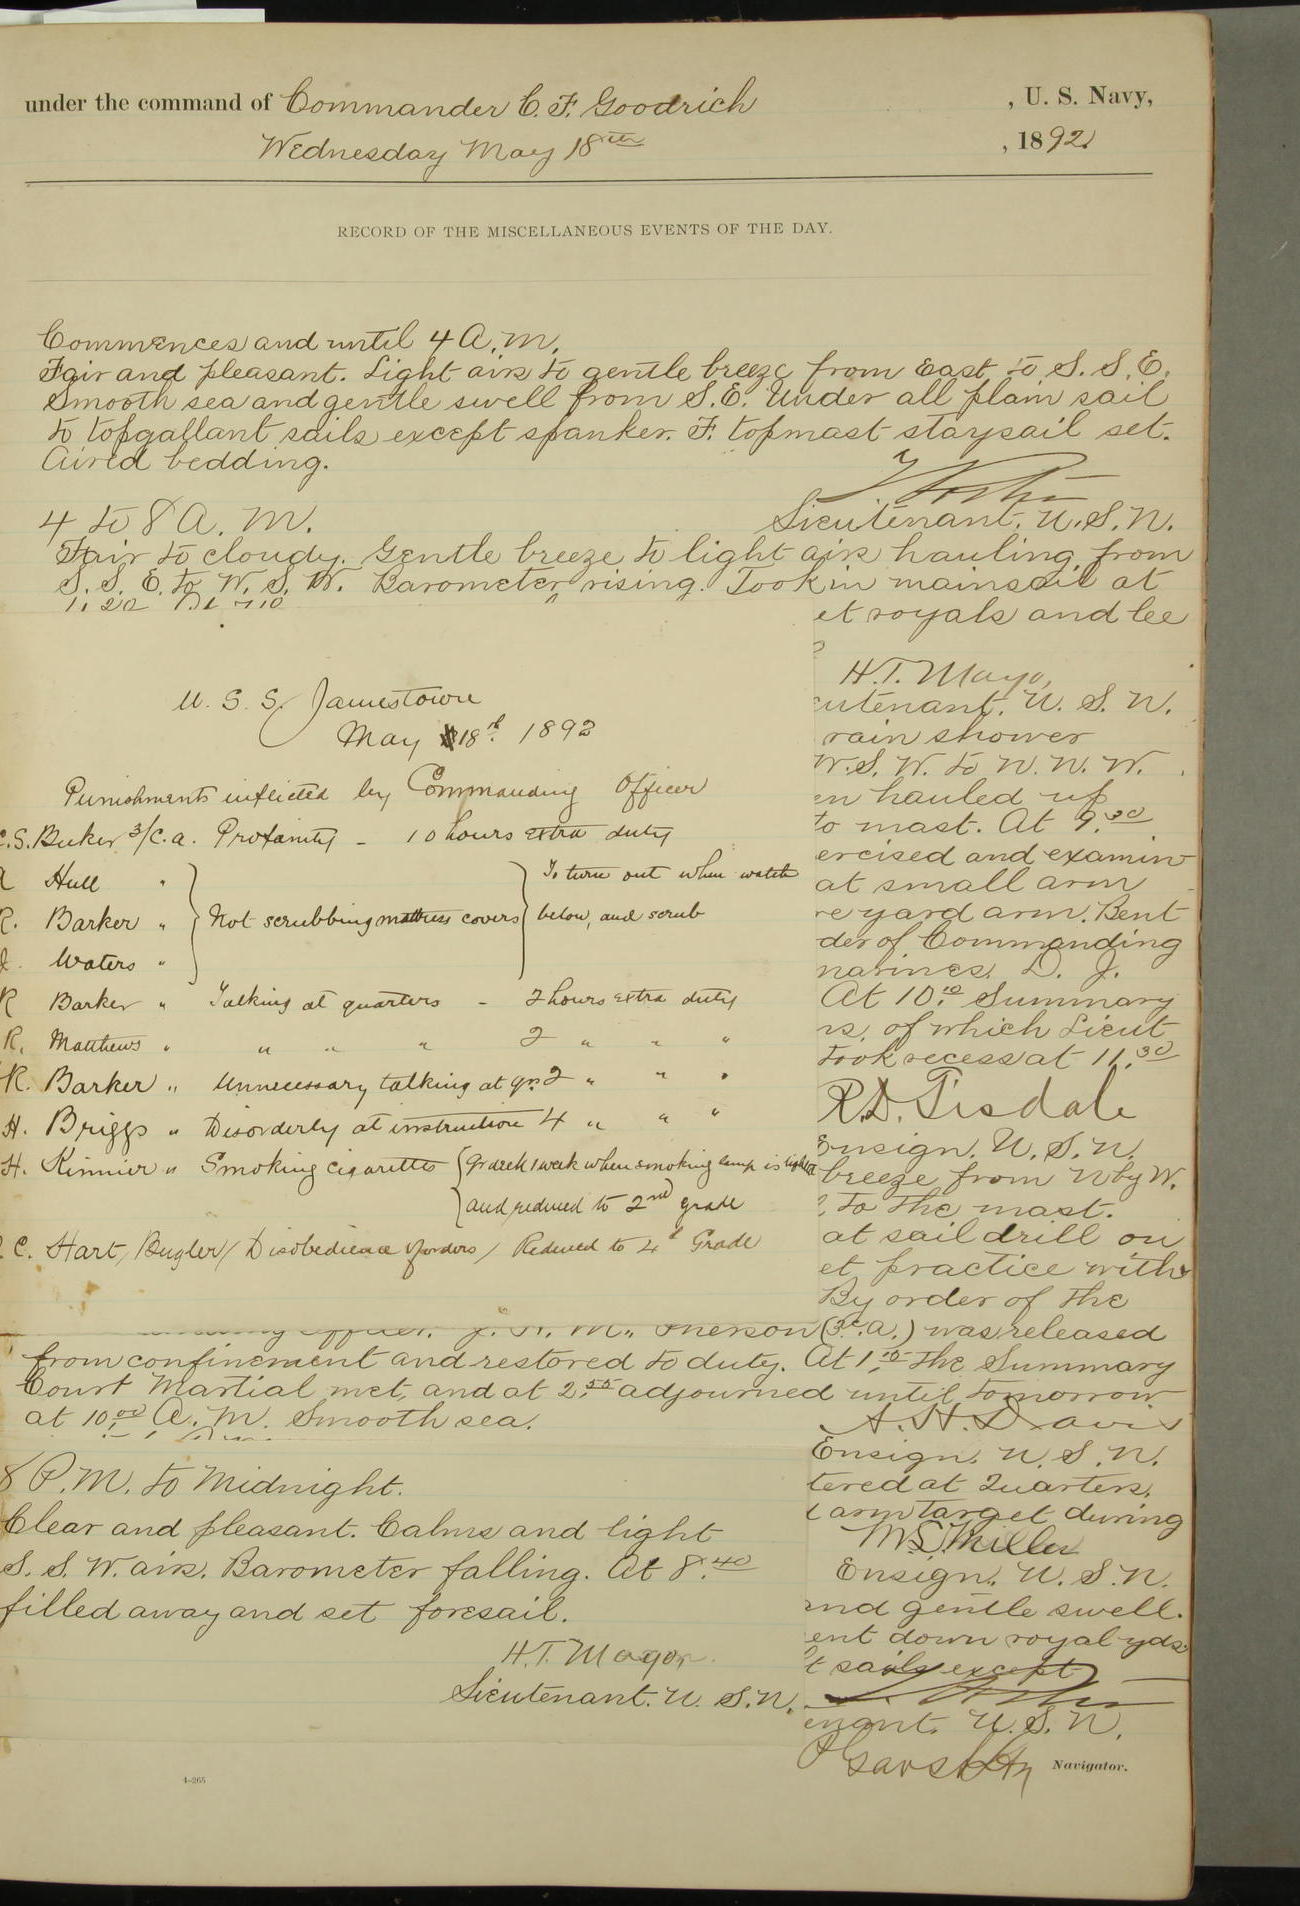 under the command of Commander C. F. Goodrich , U. S. Navy,
Wednesday May 18th , 1892.
RECORD OF THE MISCELLANEOUS EVENTS OF THE DAY.
Commences and until 4 A. M.
Fair and pleasant. Light airs to gentle breeze from East to S. S. E.
Smooth sea and gentle swell from S. E. Under all plain sail
to topgallant sails except spanker. F. topmast staysail set.
Aired bedding.
Lieutenant. U. S. N.
4 to 8 A. M.
Fair to cloudy. Gentle breeze to light airs hauling from
S. S. E. to W. S. W. Barometer rising. Took in mainsail at
et royals and lee
H. T. Mayo,
eutenant. U. S. N.
rain shower
W. S. W. to N. N. W.
en hauled up
to mast. At 9.30
ercised and examin
at small arm
re yard arm. Bent
der of Commanding
marines. D. J.
At 10.10 Summary
rs, of which Lieut
took recess at 11.30
R. D. Tisdale
Ensign. U. S. N.
breeze from N by W.
, to the mast.
at sail drill on
et practice with
By order of the
U. S. S. Jamestown
May 18th. 1892
Punishments inflicted by Commanding Officer
C. S. Buker 3/c. a. Profanity - 10 hours extra duty
Hull " } Not scrubbing mattress covers { To turn out when watch
R. Barker " below, and scrub
J. Waters "
R Barker " Talking at quarters - 2 hours extra duty
R. Matthews " " " " 2 " " "
R. Barker " Unnecessary talking at qrs. 2 " " "
H. Briggs " Disorderly at instruction 4 " " "
H. Kinnier " Smoking cigarettes { 1 week when smoking lamp is lighted
and reduced to 2nd grade
C. Hart, Bugler / Disobedience of orders / Reduced to 4th Grade
officer. J. H. M. Pherson (3.c.a.) was released
from confinement and restored to duty. At 1.15 the Summary
Court Martial met, and at 2.55 adjourned until tomorrow
at 10.00 A. M. Smooth sea.
A. H. Davis
Ensign. U. S. N.
tered at Quarters.
l arm target during
M. S. Miller
Ensign. U. S. N.
and gentle swell.
ent down royal yds.
t sails except
enant. U. S. N.
8 P. M. to Midnight.
Clear and pleasant. Calms and light
S. S. W. airs. Barometer falling. At 8.40
filled away and set foresail.
H. T. Mayo,
Lieutenant. U. S. N.
Navigator.
4-265